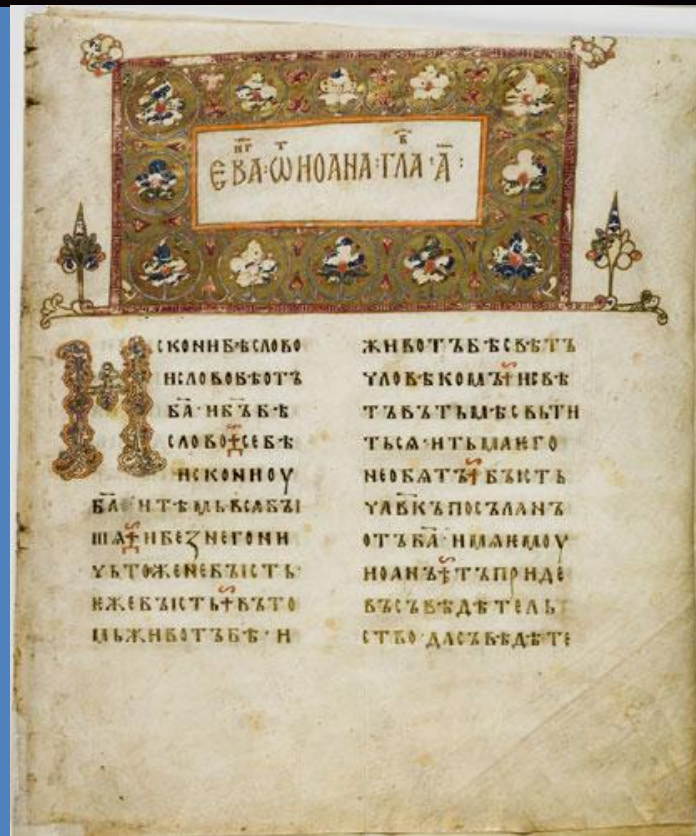 ЕВА҇НГ·Ѿ ИОАНА·ГЛАВ·А҃:
ИСКОНИБѢСЛОВО
ИСЛОВОБѢОТЪ
БА҃·ИБЪ҃БѢ
СЛОВО·СЕБѢ
ИСКОНИОУ
БА҃·ИТѢМЬВСЯБЫ
ША·ИБЕЗНЕГОНИ
ЧЬТОЖЕНЕБЪІСТЬ·
ЕЖЕБЪІСТЬ·ВЪТО
МЬЖИВОТЪБѢ·И
ЖИВОТЪБѢСВѢТЪ
ЧЛОВѢКОМЪ·ИСВѢ
ТЪВЪТЬМѢСВЬТИ
ТЬСѦ·ИТЬМАЕГО
НЕОБѦТЪ·БЪІСТЬ
ЧЛ҃ВКЪПОСЪЛАНЪ
ОТЪБА҃·ИМѦЕМОУ
ИОАНЪ·ТЪПРИДЕ
ВЪСЪВѢДѢТЕЛЬ
СТВО·ДАСЪВѢДѢТЕ